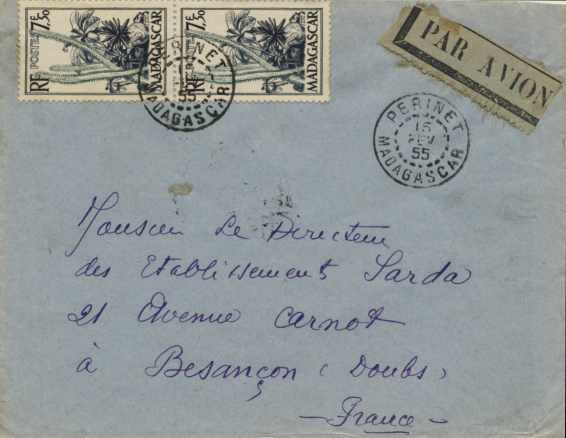 RF POSTES 7F50 MADAGASCAR
RF 7F50 MADAGASCAR
PERINET
55
MADAGASCAR
PAR AVION
PERINET
15
FEV
55
MADAGASCAR
Monsieur Le Directeur
des Etablissements Sarda
21 Avenue Carnot
à Besançon (Doubs)
-France-